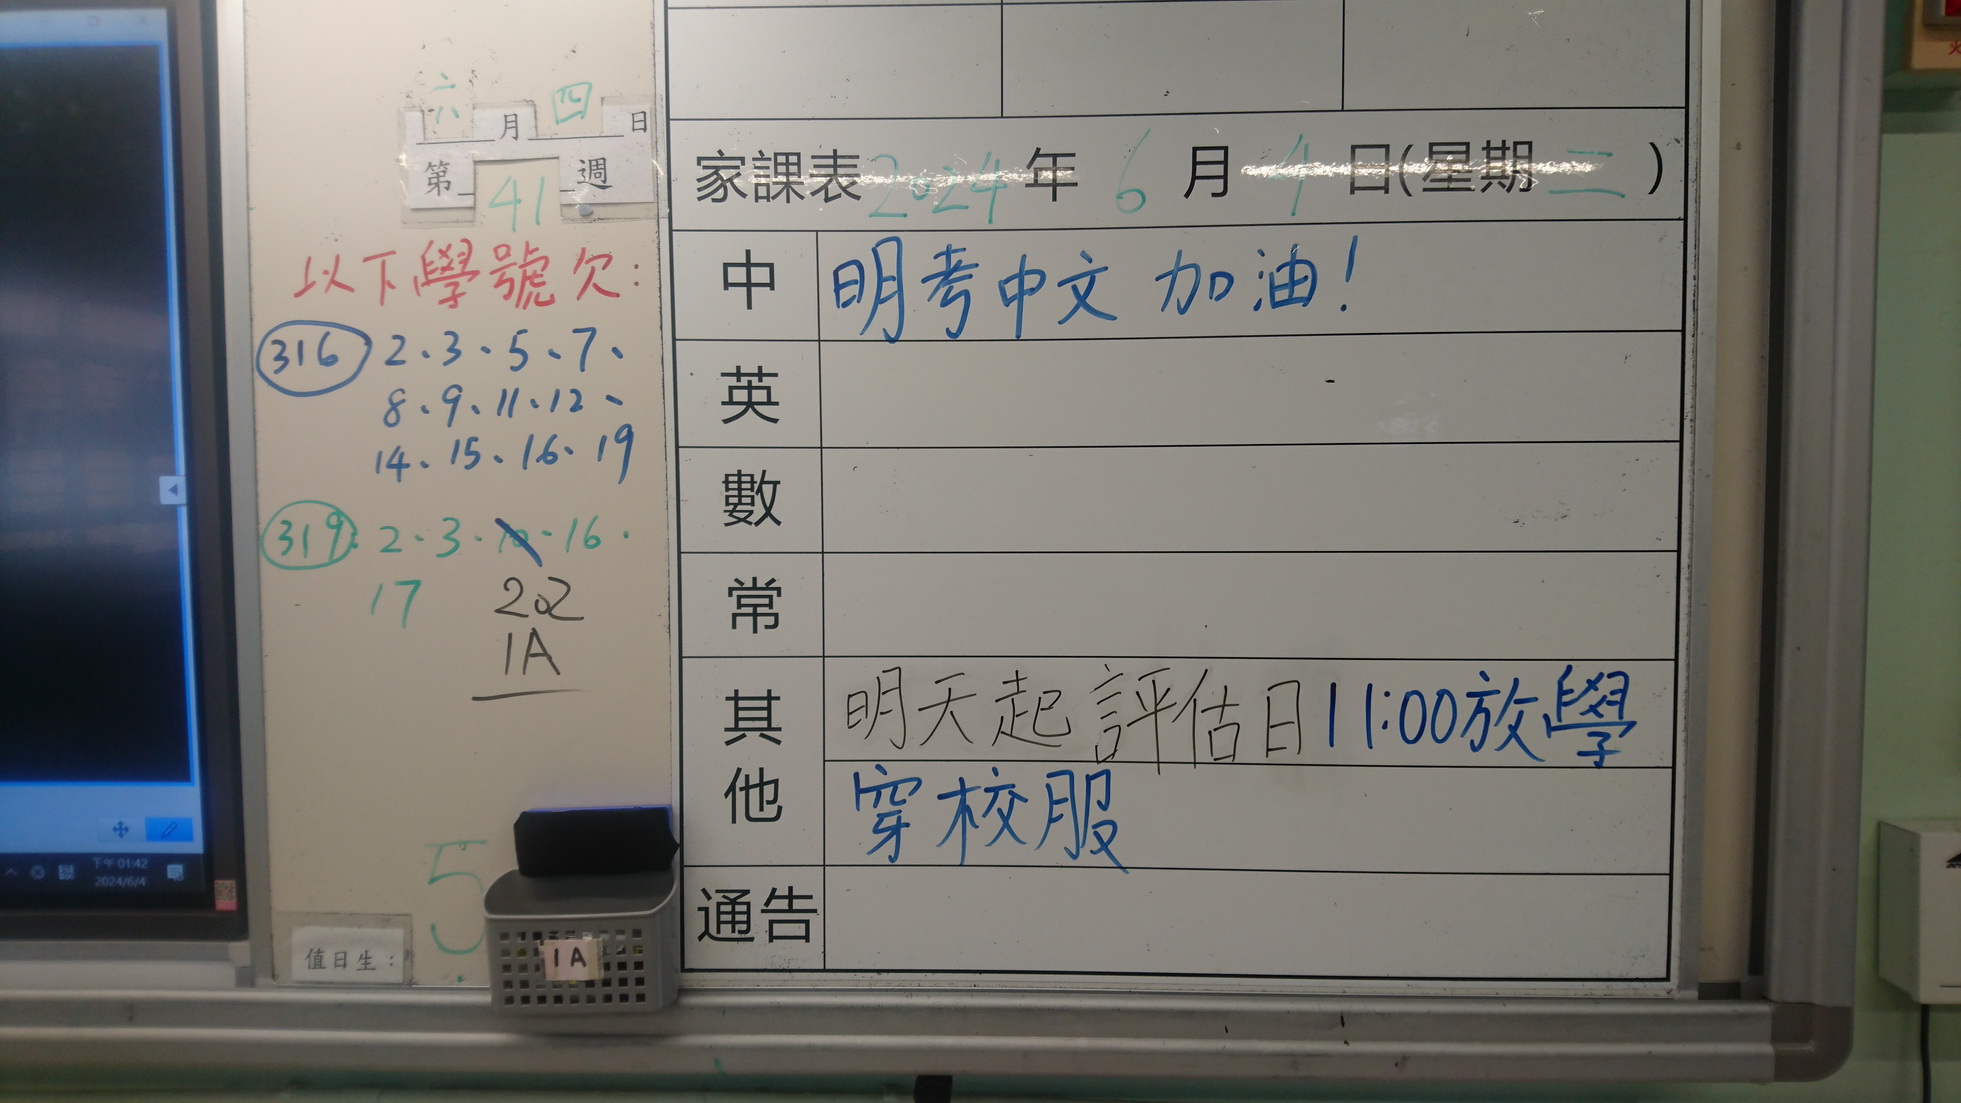 六月四日
第41週
以下學號欠：
316 2、3、5、7、
8、9、11、12、
14、15、16、19
319: 2、3、10、16、
17
202
1A
5
值日生：
1A
下午 01:42
2024/6/4
家課表 2024年 6月 4日(星期 二)
中 明考中文 加油！
英
數
常
其他 明天起評估日11:00放學
穿校服
通告